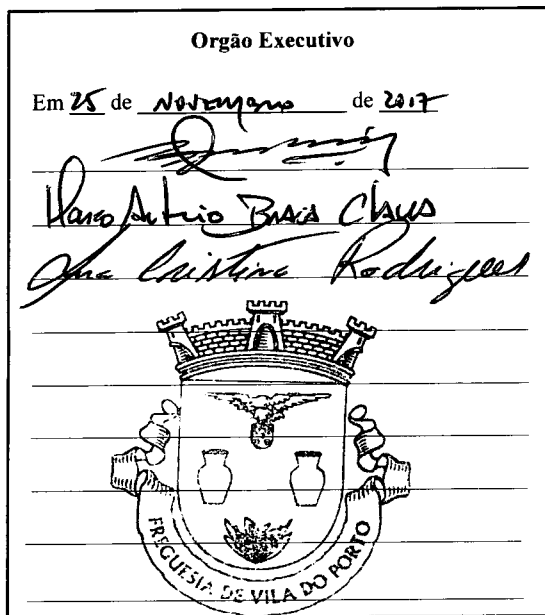 Orgão Executivo
Em 25 de Novembro de 2017
Marco António Braia Chaves
Ana Cristina Rodrigues
FREGUESIA DE VILA DO PORTO